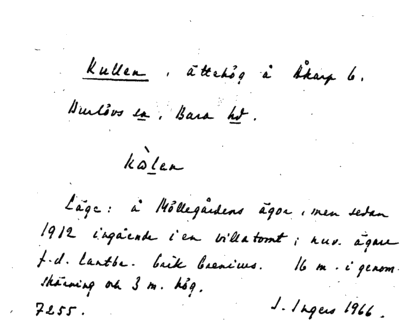 Kullen, ättehög å Åkarp 6.
Burlövs sn, Bara hd.
Läge: å Möllegårdens ägor, men sedan
1912 ingående i en villatomt; nuv. ägare
f.d. lantbr. Erik 16 m. i genom-
skärning och 3 m. hög.
7255. I. Ingers 1966.